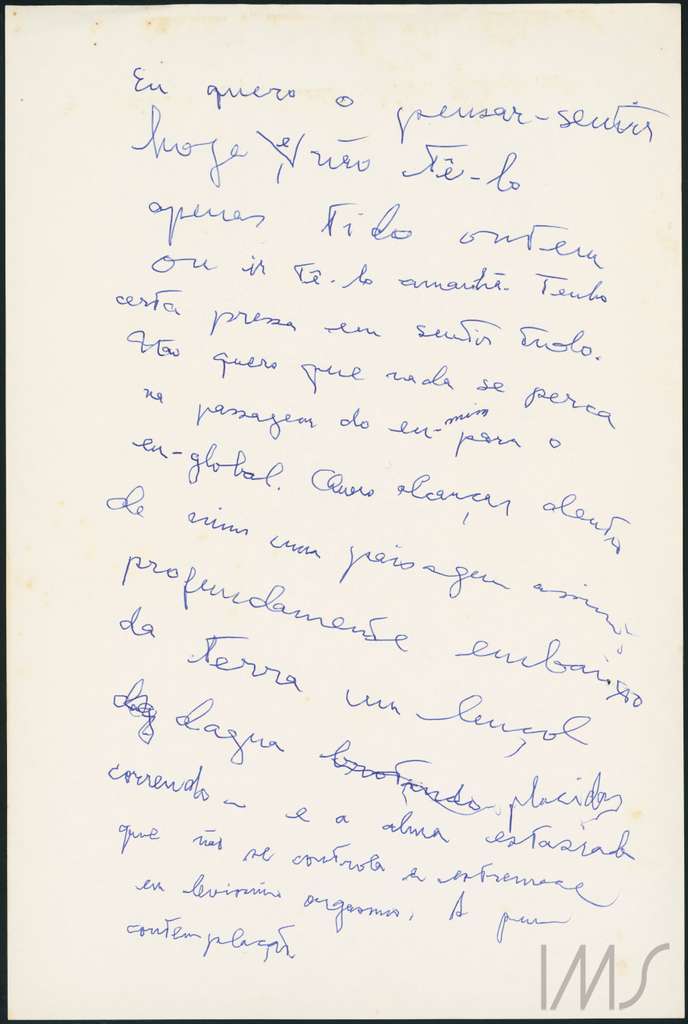 Eu quero o pensar-sentir
hoje e, não tê-lo
apenas tido ontem
ou ir tê-lo amanhã. Tenho
certa pressa em sentir tudo.
Não quero que nada se perca
na passagem do eu-mim para o
eu-global. Quero alcançar dentro
de mim uma paisagem assim:
profundamente embaixo
da terra um lençol
dagua brotando placidas
correndo — e a alma estasiada
que não se controla e estremece
em levissimo orgasmo. A pura
contemplação
IMS